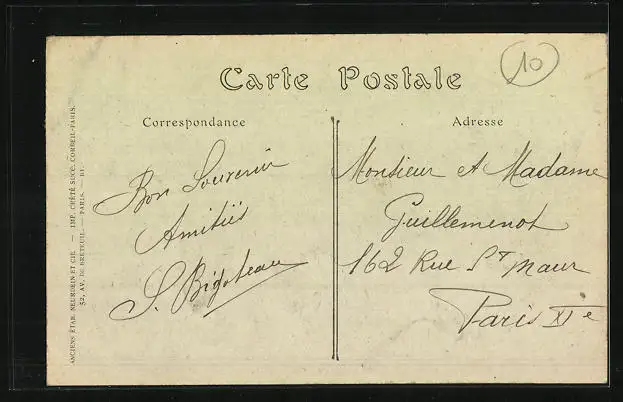 Carte Postale
10
Correspondance
Adresse
Bon Souvenir
Amitiés
S. Bigoteau
Monsieur et Madame
Guillemenot
162 Rue St Maur
Paris XIe
ANCIENS ÉTAB. NEURDEIN ET CIE. — IMP. CRÉTÉ SUCC. CORBEIL-PARIS.
52, AV. DE BRETEUIL. — PARIS. —